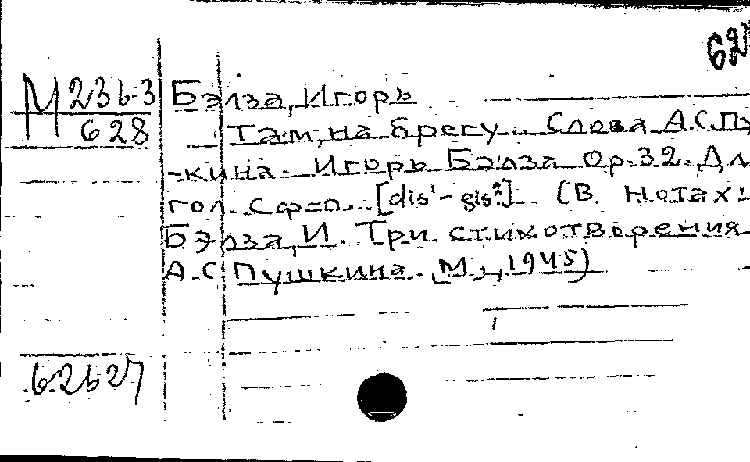 62
М 236-3
628
Бэлза, Игорь
Там, на брегу.. Слова А.С.Пу
-кина. Игорь Бэлза Ор.32. Дл
гол. с ф=п.. [dis¹- gis²]. (В нотах:
Бэлза, И. Три стихотворения
А.С. Пушкина. М., 1945)
62627